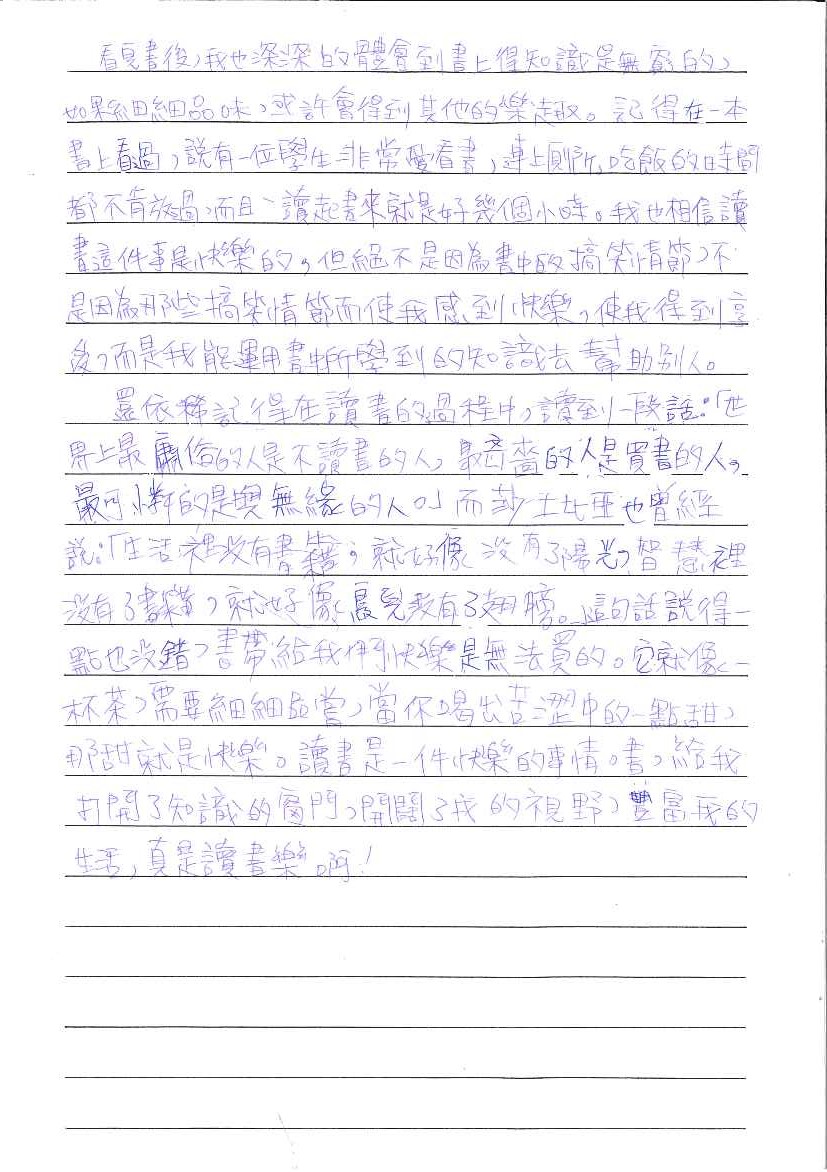 看見書後，我也深深的體會到書上得知識是無窮的，
如果細細品味，或許會得到其他的樂趣。記得在一本
書上看過，說有一位學生非常愛看書，連上廁所、吃飯的時間
都不肯放過，而且、讀起書來就是好幾個小時。我也相信讀
書這件事是快樂的，但絕不是因為書中的搞笑情節，不
是因為那些搞笑情節而使我感到快樂，使我得到享
後，而是我能運用書中所學到的知識去幫助別人。
還依稀記得在讀書的過程中，讀到一段話：「世
界上最庸俗的人是不讀書的人，最吝嗇的人是買書的人，
最可憐的是與無緣的人。」而莎士比亞也曾經
說：「生活裡沒有書籍，就好像沒有了陽光，智慧裡
沒有了書籍，就好像鳥兒沒有了翅膀。」這句話說得一
點也沒錯，書帶給我們快樂是無法買的。它就像一
杯茶，需要細細品嘗，當你喝出苦澀中的一點甜，
那甜就是快樂。讀書是一件快樂的事情。書，給我
打開了知識的窗門，開闊了我的視野，豐富我的
生活，真是讀書樂啊！